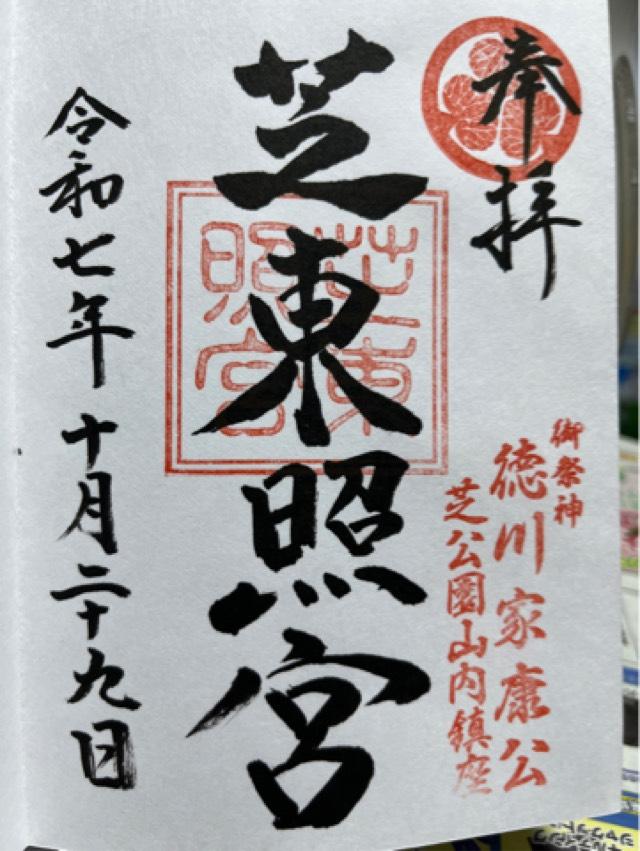 奉拝
御祭神
徳川家康公
芝公園山内鎮座
芝東照宮
芝東照宮
令和七年十月二十九日